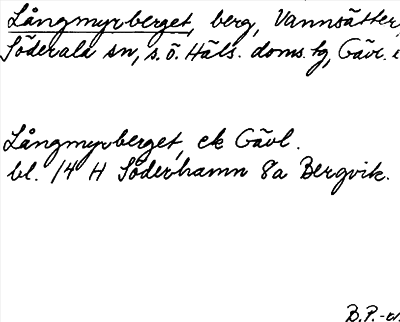 Långmyrberget, berg, Vannsätter,
Söderala sn, s.ö. Häls. doms. tg, Gävl.
Långmyrberget, ek Gävl.
bl. 14 H Söderhamn 8a Bergvik.
B.P.-